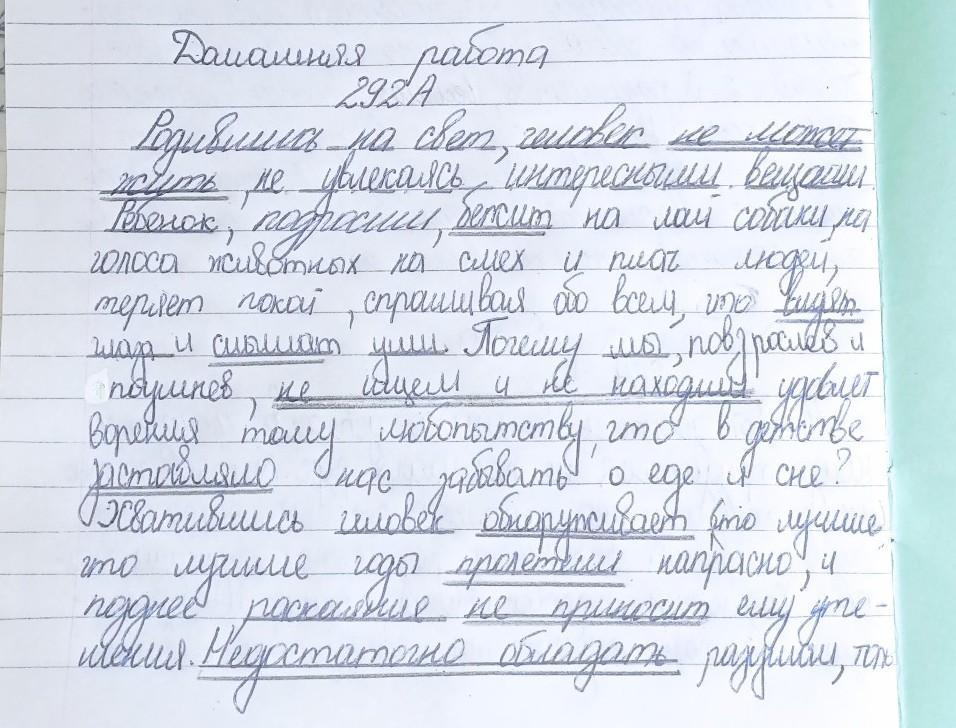 Домашняя работа
292А
Родившись на свет, человек не может
жить, не увлекаясь интересными вещами.
Ребенок, подросши, бежит на лай собаки, на
голоса животных на смех и плач людей,
теряет покой, спрашивая обо всем, что видят
глаза и слышат уши. Почему мы, повзрослев и
поумнев, не ищем и не находим удовлет
ворения тому любопытству, что в детстве
заставляло нас забывать о еде и сне?
Хватившись человек обнаруживает (что лучшие)
что лучшие годы пролетели напрасно, и
позднее раскаяние не приносит ему уте-
шения. Недостаточно обладать разумом,